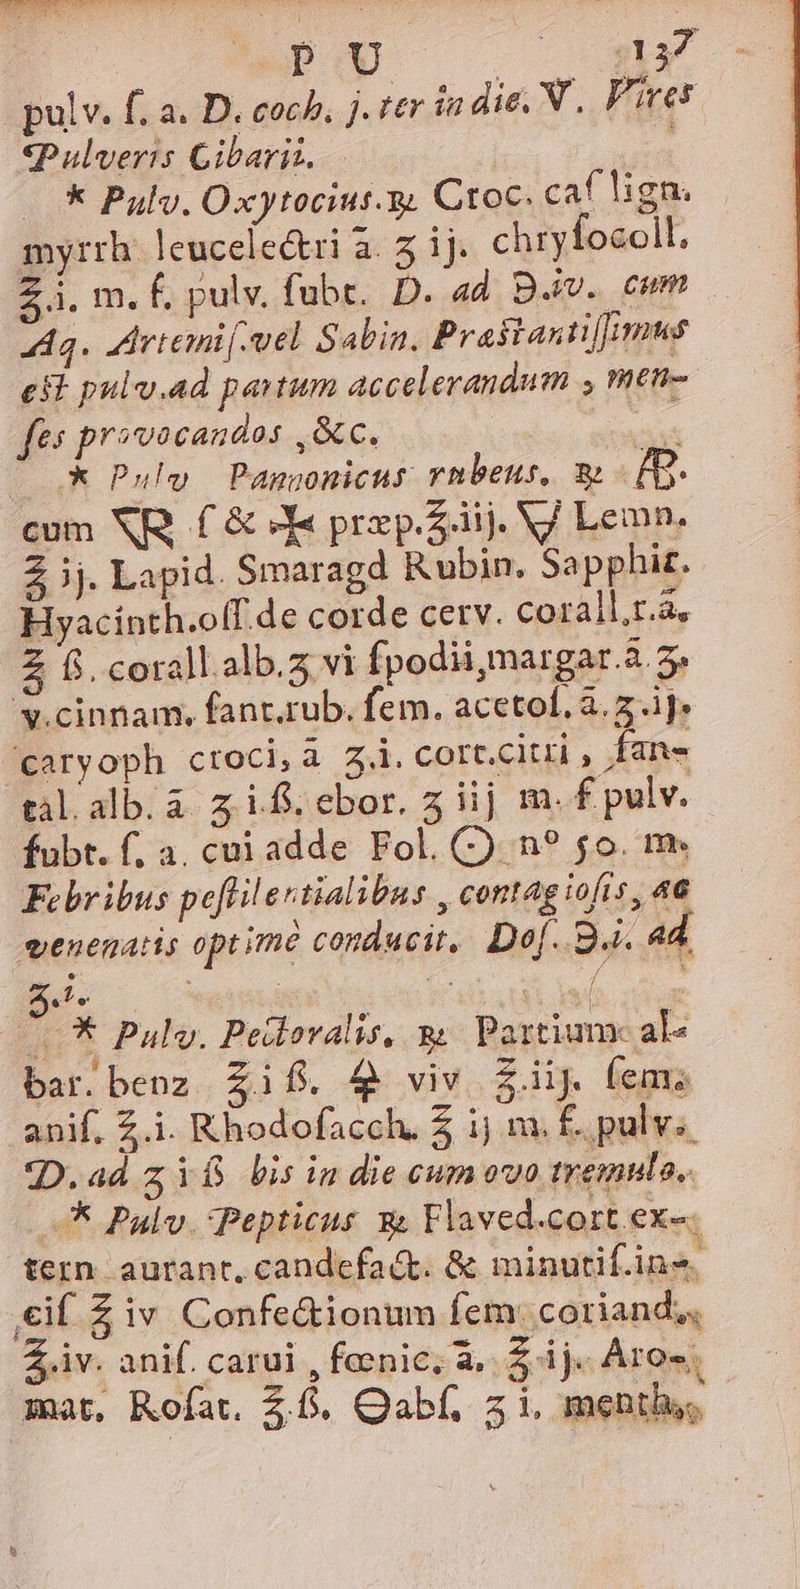 P U 137
pulv. ſ. a. D. coch. j. ter in die. V. Vires
Pulveris Cibarii.
* Pulv. Oxytocius. ℞ Croc. caſ lign.
myrrh leucelectri ā ʒ ij. chryſocoll.
℥i. m. f. pulv. ſubt. D. ad ℈iv. cum
Aq. Artemiſ. vel Sabin. Præstantiſſimus
est pulv. ad partum accelerandum, men-
ſes provocandos, &c.
* Pulv Pannonicus rubeus. ℞
cum ſ & præp. ℥iij. Lemn.
℥ ij. Lapid. Smaragd Rubin. Sapphir.
Hyacinth. oſſ. de corde cerv. corall, r. ā.
℥ ß. corall alb. ʒ vi ſpodii, margar. ā. ʒ.
v. cinnam. ſant. rub. ſem. acetoſ. ā. ʒ. ij.
caryoph croci, ā ʒ. i. cort. citri, ſan-
tal. alb. ā ʒ i ß. ebor. ʒ iij m. f pulv.
ſubt. ſ. a. cui adde Fol. ☉ nº 50. m.
Febribus peſtilentialibus, contagioſis, ac
venenatis optimè conducit. Doſ. ℈. i. ad
ʒ. i.
* Pulv. Pectoralis. ℞ Partium al-
bar. benz ℥i ß. 🜍 viv ℥. iij. ſem.
aniſ. ℥. i. Rhodoſacch. ℥ ij m. f. pulv.
D. ad ʒ i ß bis in die cum ovo tremulo.
* Pulv. Pepticus ℞ Flaved. cort ex-
tern aurant. candefact. & minutiſ. in-
ciſ ℥ iv Confectionum ſem coriand.
℥. iv. aniſ. carui, fœnic. ā. ℥ ij. Aro-
mat. Roſat. ℥. ß. abſ. ʒ i. menth.